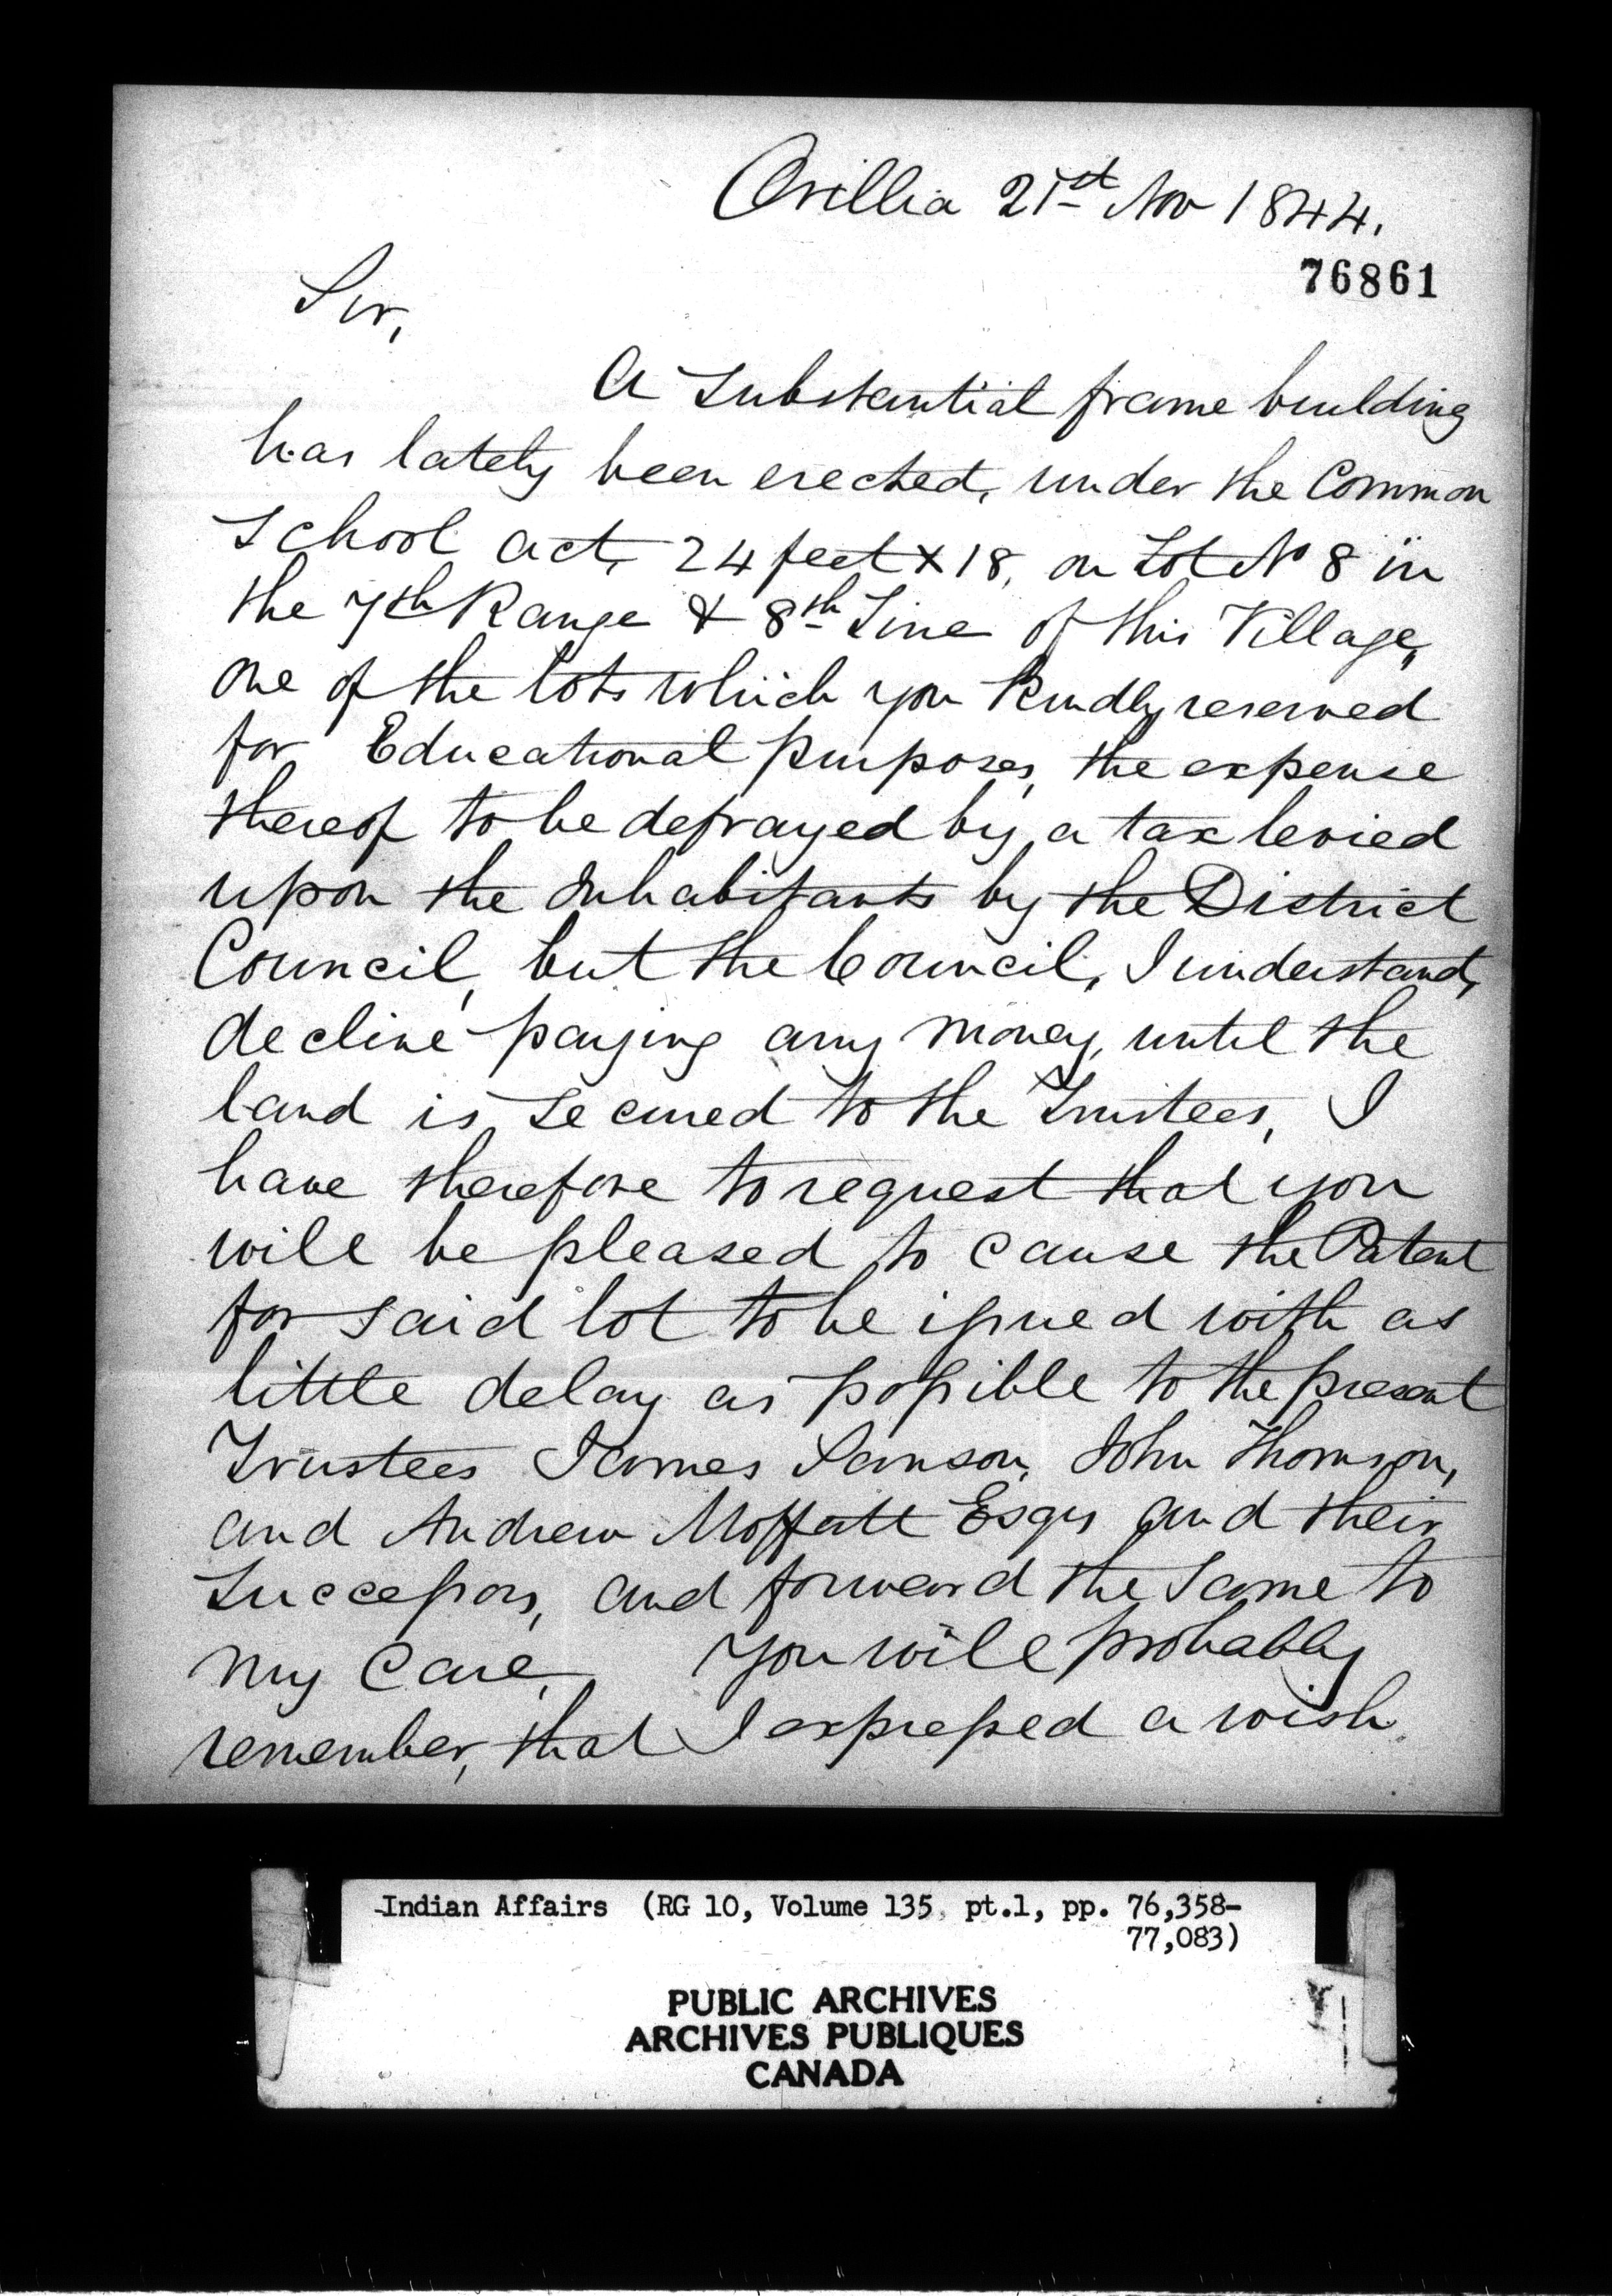 Orillia 21st Nov 1844.
76861
Sir,
A Substantial frame building
has lately been erected, under the Common
School act, 24 feet X 18, on Lot No 8 in
the 7th Range & 8th Line of this Village,
one of the lots which you Kindly reserved
for Educational purposes, the expense
thereof to be defrayed by a tax levied
upon the Inhabitants by the District
Council, but the Council, I understand,
decline paying any money, until the
land is secured to the Trustees, I
have therefore to request that you
will be pleased to cause the Patent
for said lot to be issued with as
little delay as possible to the present
Trustees James Samson, John Thomson,
and Andrew Moffatt Esqrs and their
Successors, and forward the same to
my Care, You will probably
remember, that I expressed a wish
Indian Affairs (RG 10, Volume 135 pt.1, pp. 76,358-
77,083)
PUBLIC ARCHIVES
ARCHIVES PUBLIQUES
CANADA